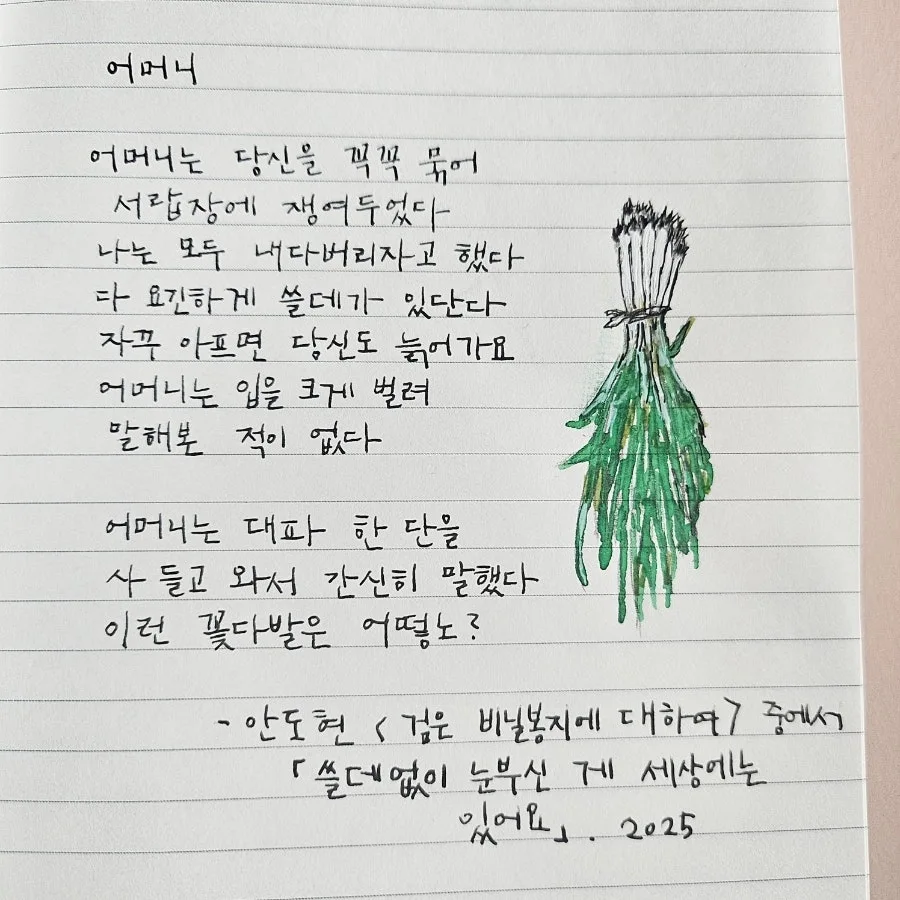 어머니
어머니는 당신을 꼭꼭 묶어
서랍장에 쟁여두었다
나는 모두 내다버리자고 했다
다 요긴하게 쓸데가 있단다
자꾸 아프면 당신도 늙어가요
어머니는 입을 크게 벌려
말해본 적이 없다
어머니는 대파 한 단을
사 들고 와서 간신히 말했다
이런 꽃다발은 어떻노?
- 안도현 < 검은 비닐봉지에 대하여> 중에서
「쓸데없이 눈부신 게 세상에는
있어요」. 2025